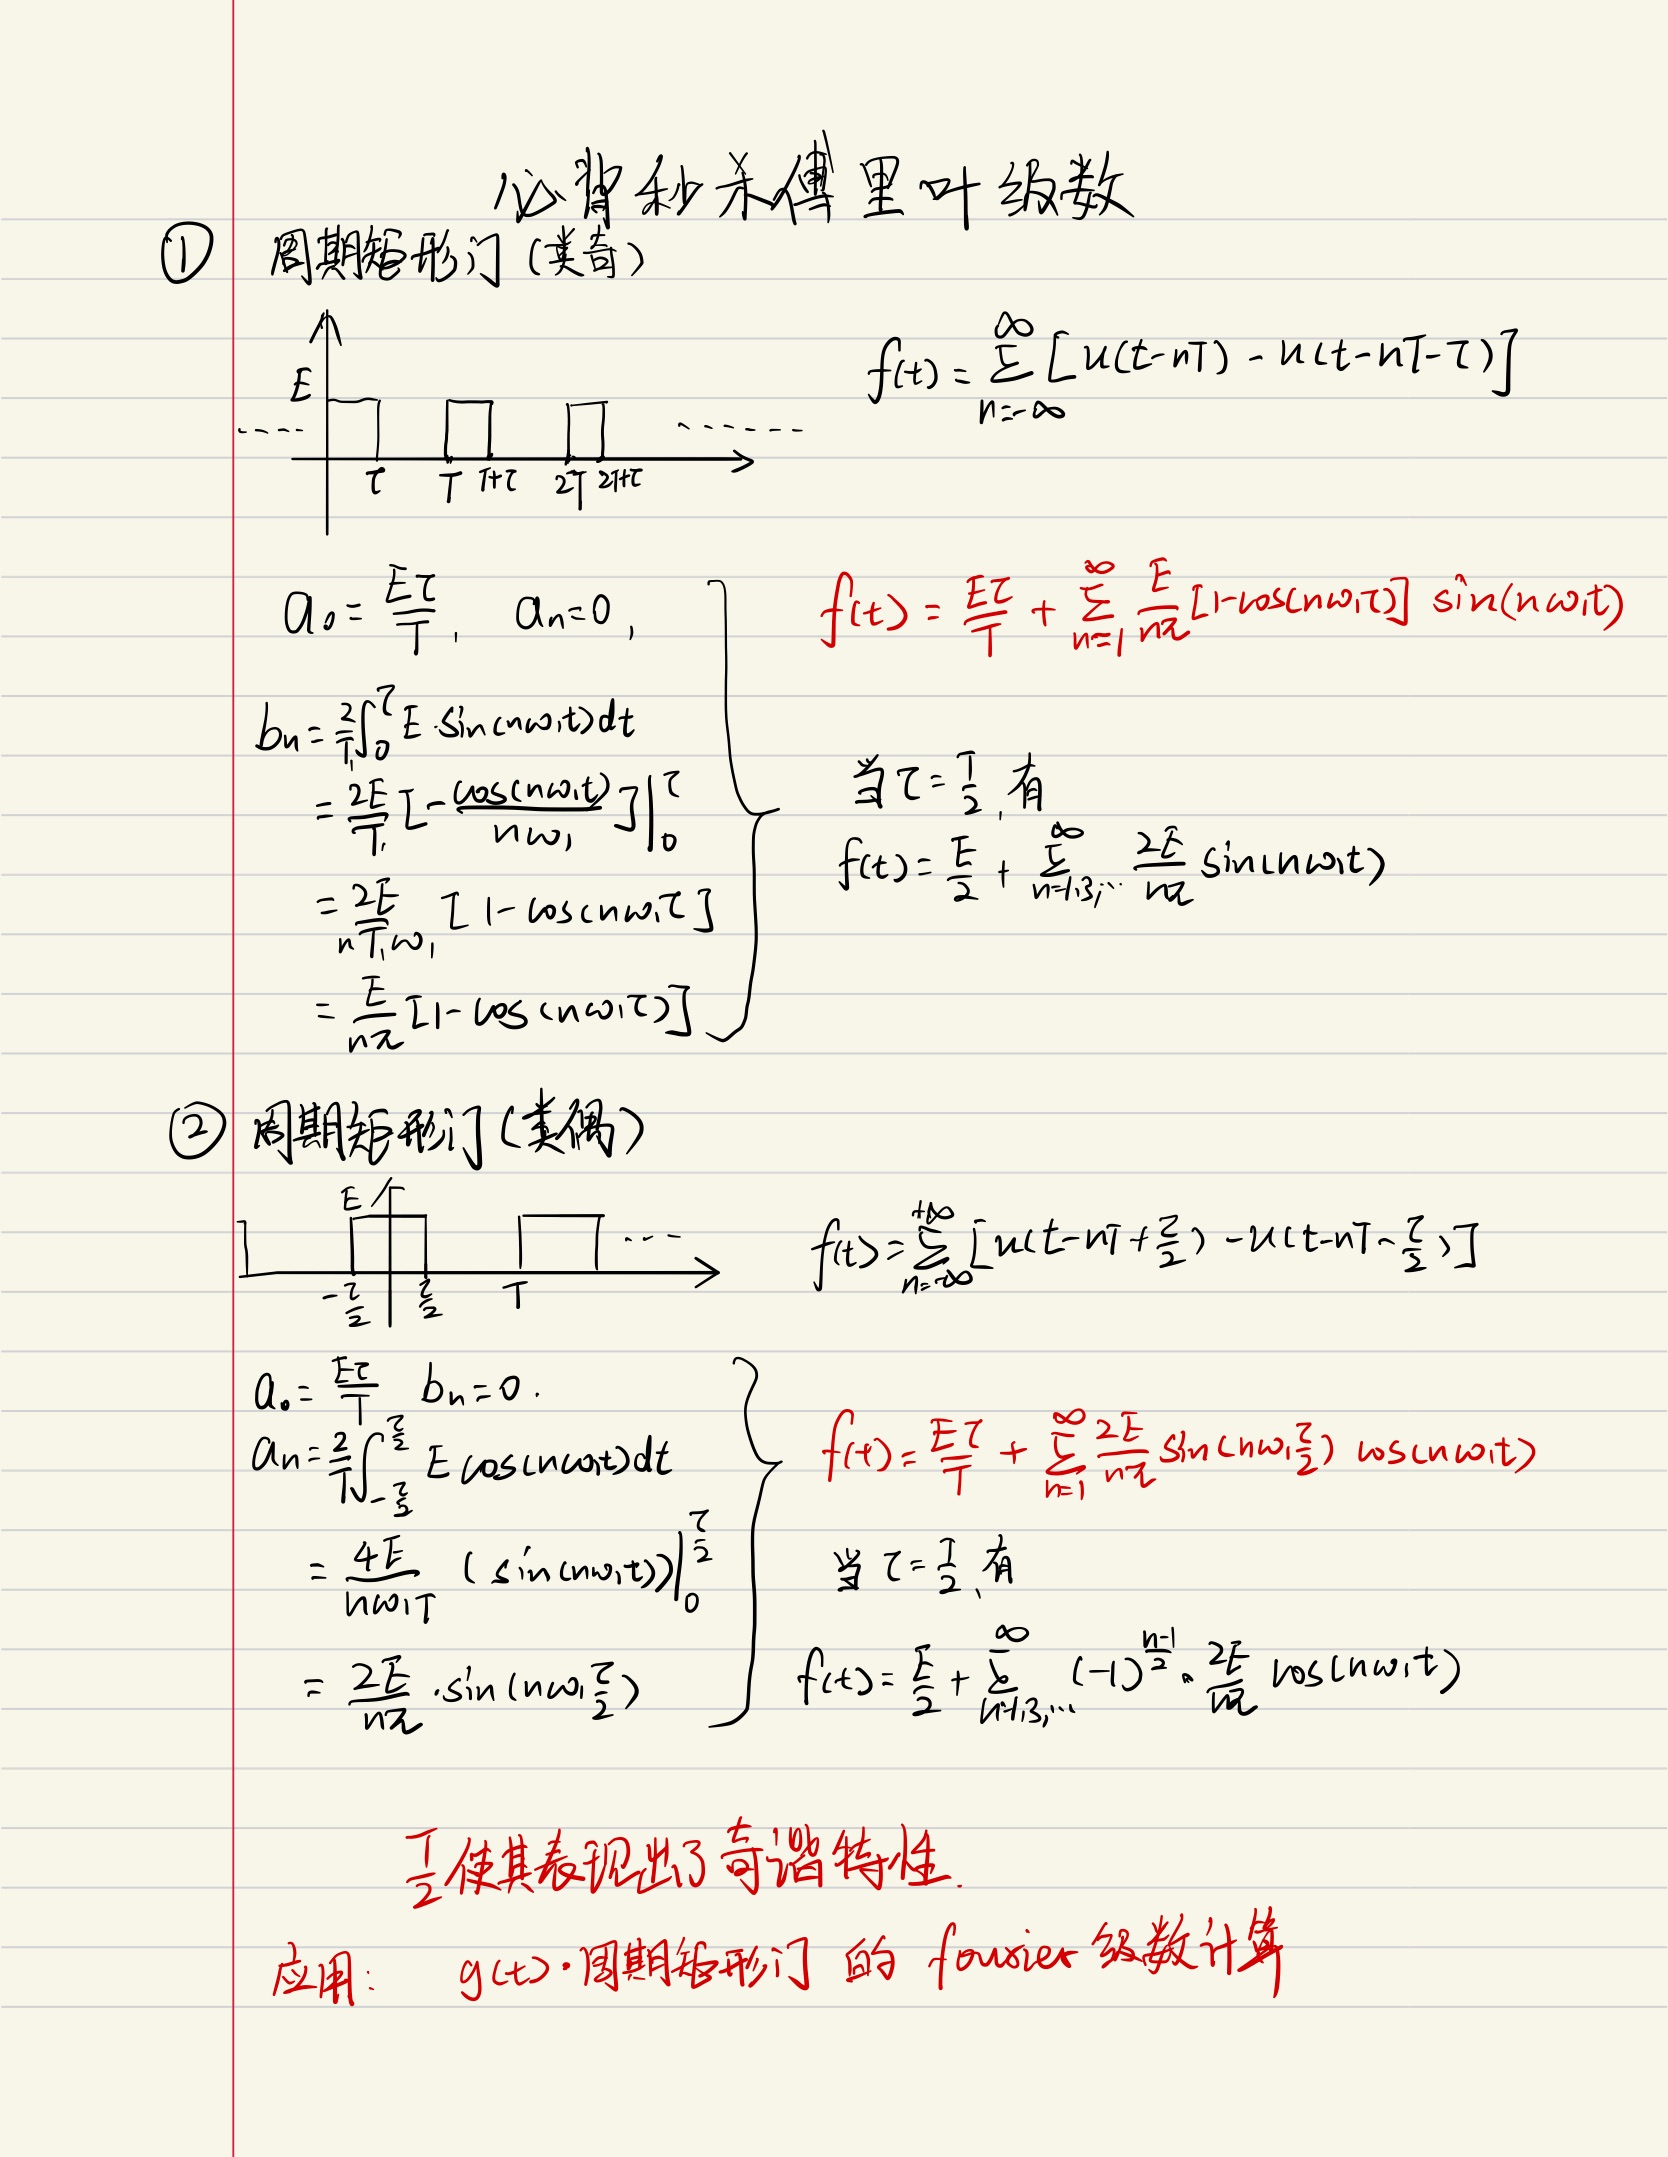 必背秒杀傅里叶级数
① 周期矩形门(类奇)
E
τ T T+τ 2T 2T+τ
f(t) = ∑_{n=-∞}^{∞} [u(t-nT) - u(t-nT-τ)]
a₀ = Eτ/T₁ aₙ=0,
f(t) = Eτ/T + ∑_{n=1}^{∞} E/nπ [1-cos(nω₁τ)] sin(nω₁t)
bₙ = 2/T₁ ∫₀^τ E·sin(nω₁t)dt
= 2E/T₁ [-cos(nω₁t)/nω₁]|₀^τ
= 2E/nT₁ω₁ [1-cos(nω₁τ]
= E/nπ [1-cos(nω₁τ)]
当τ=T/2,有
f(t) = E/2 + ∑_{n=1,3,…}^{∞} 2E/nπ sin(nω₁t)
② 周期矩形门(类偶)
E
-τ/2 τ/2 T
f(t) = ∑_{n=-∞}^{+∞} [u(t-nT+τ/2) - u(t-nT-τ/2)]
a₀ = Eτ/T bₙ=0.
aₙ = 2/T ∫_{-τ/2}^{τ/2} E cos(nω₁t)dt
= 4E/nω₁T (sin(nω₁t))|₀^{τ/2}
= 2E/nπ ·sin(nω₁τ/2)
f(t) = Eτ/T + ∑_{n=1}^{∞} 2E/nπ sin(nω₁τ/2) cos(nω₁t)
当τ=T/2,有
f(t) = E/2 + ∑_{n=1,3,…}^{∞} (-1)^{(n-1)/2} · 2E/nπ cos(nω₁t)
T/2使其表现出了奇谐特性.
应用: g(t)·周期矩形门 的 fourier级数计算